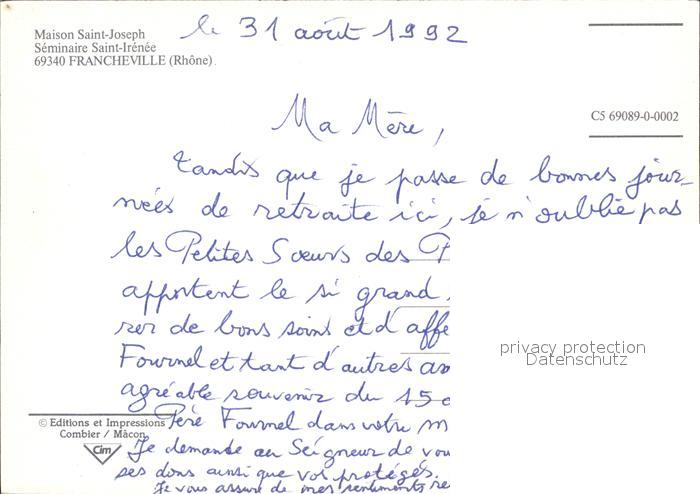 Maison Saint-Joseph
Séminaire Saint-Irénée
69340 FRANCHEVILLE (Rhône)
le 31 août 1992
C5 69089-0-0002
Ma Mère,
Tandis que je passe de bonnes jour-
nées de retraite ici, je n'oublie pas
les Petites Sœurs des P
apportent le si grand
rer de bons soins et d'affe
Fournel et tant d'autres
agréable souvenir du 15
Père Fournel dans votre m
Je demande au Seigneur de vou
ses dons ainsi que vos protégés.
Je vous assure de mes sentiments re
privacy protection
Datenschutz
© Editions et Impressions
Combier / Mâcon
Cim